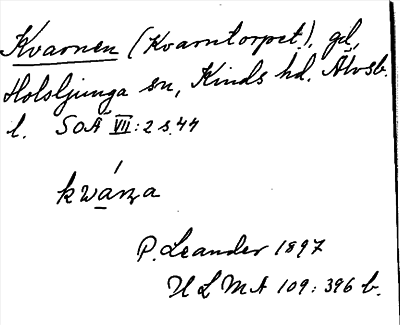 Kvarnen (Kvarntorpet), gd,
Holsljunga sn, Kinds hd. Älvsb.
l. SOÄ VII:2 s.44
kwárna
P. Leander 1897
ULMA 109:396 b.